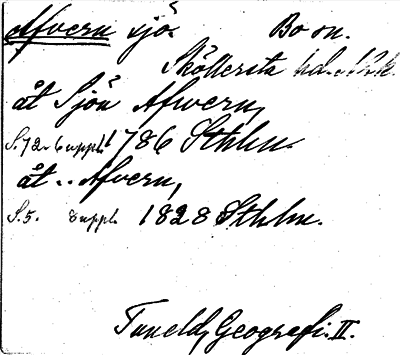 Afvern sjö. Bo sn.
Sköllersta hd. Nrk.
åt Sjön Afwern,
S. 72. 6 uppl. 1786 Sthlm.
åt .. Afvern,
S. 5. 8 uppl. 1828 Sthlm.
Tuneld, Geografi. II.